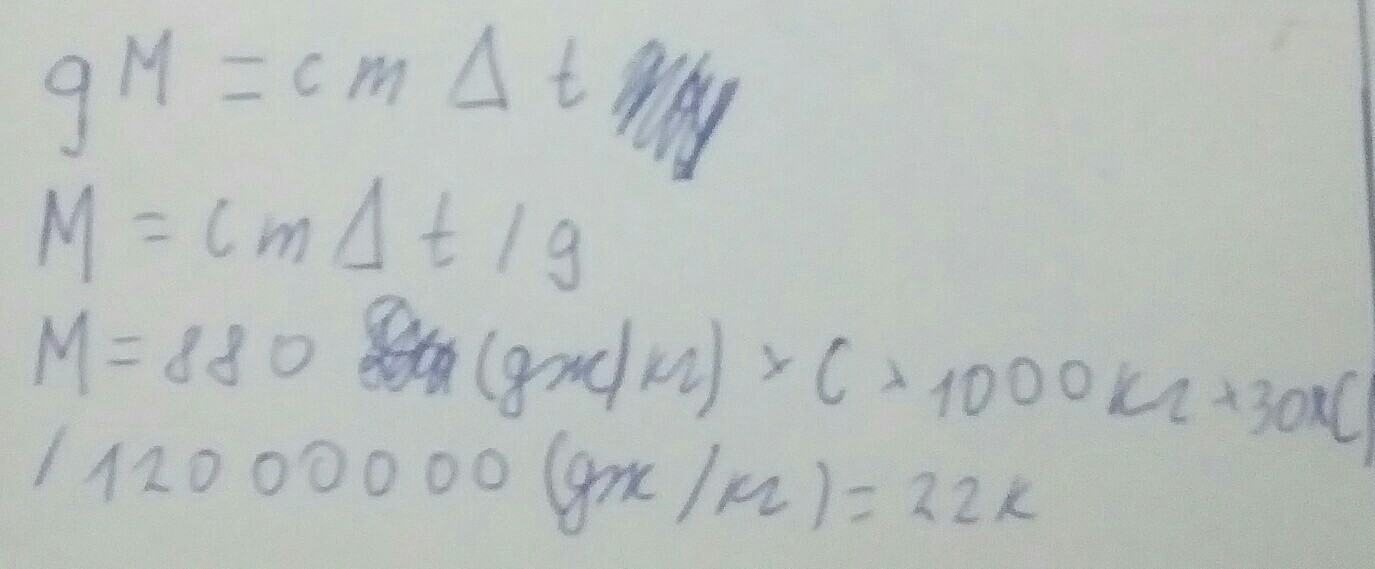 gM = cm Δ t
M = cm Δ t / g
M = 880 (дж/кг) × C × 1000 кг × 30 × C
/ 12000000 (дж/кг) = 22 к